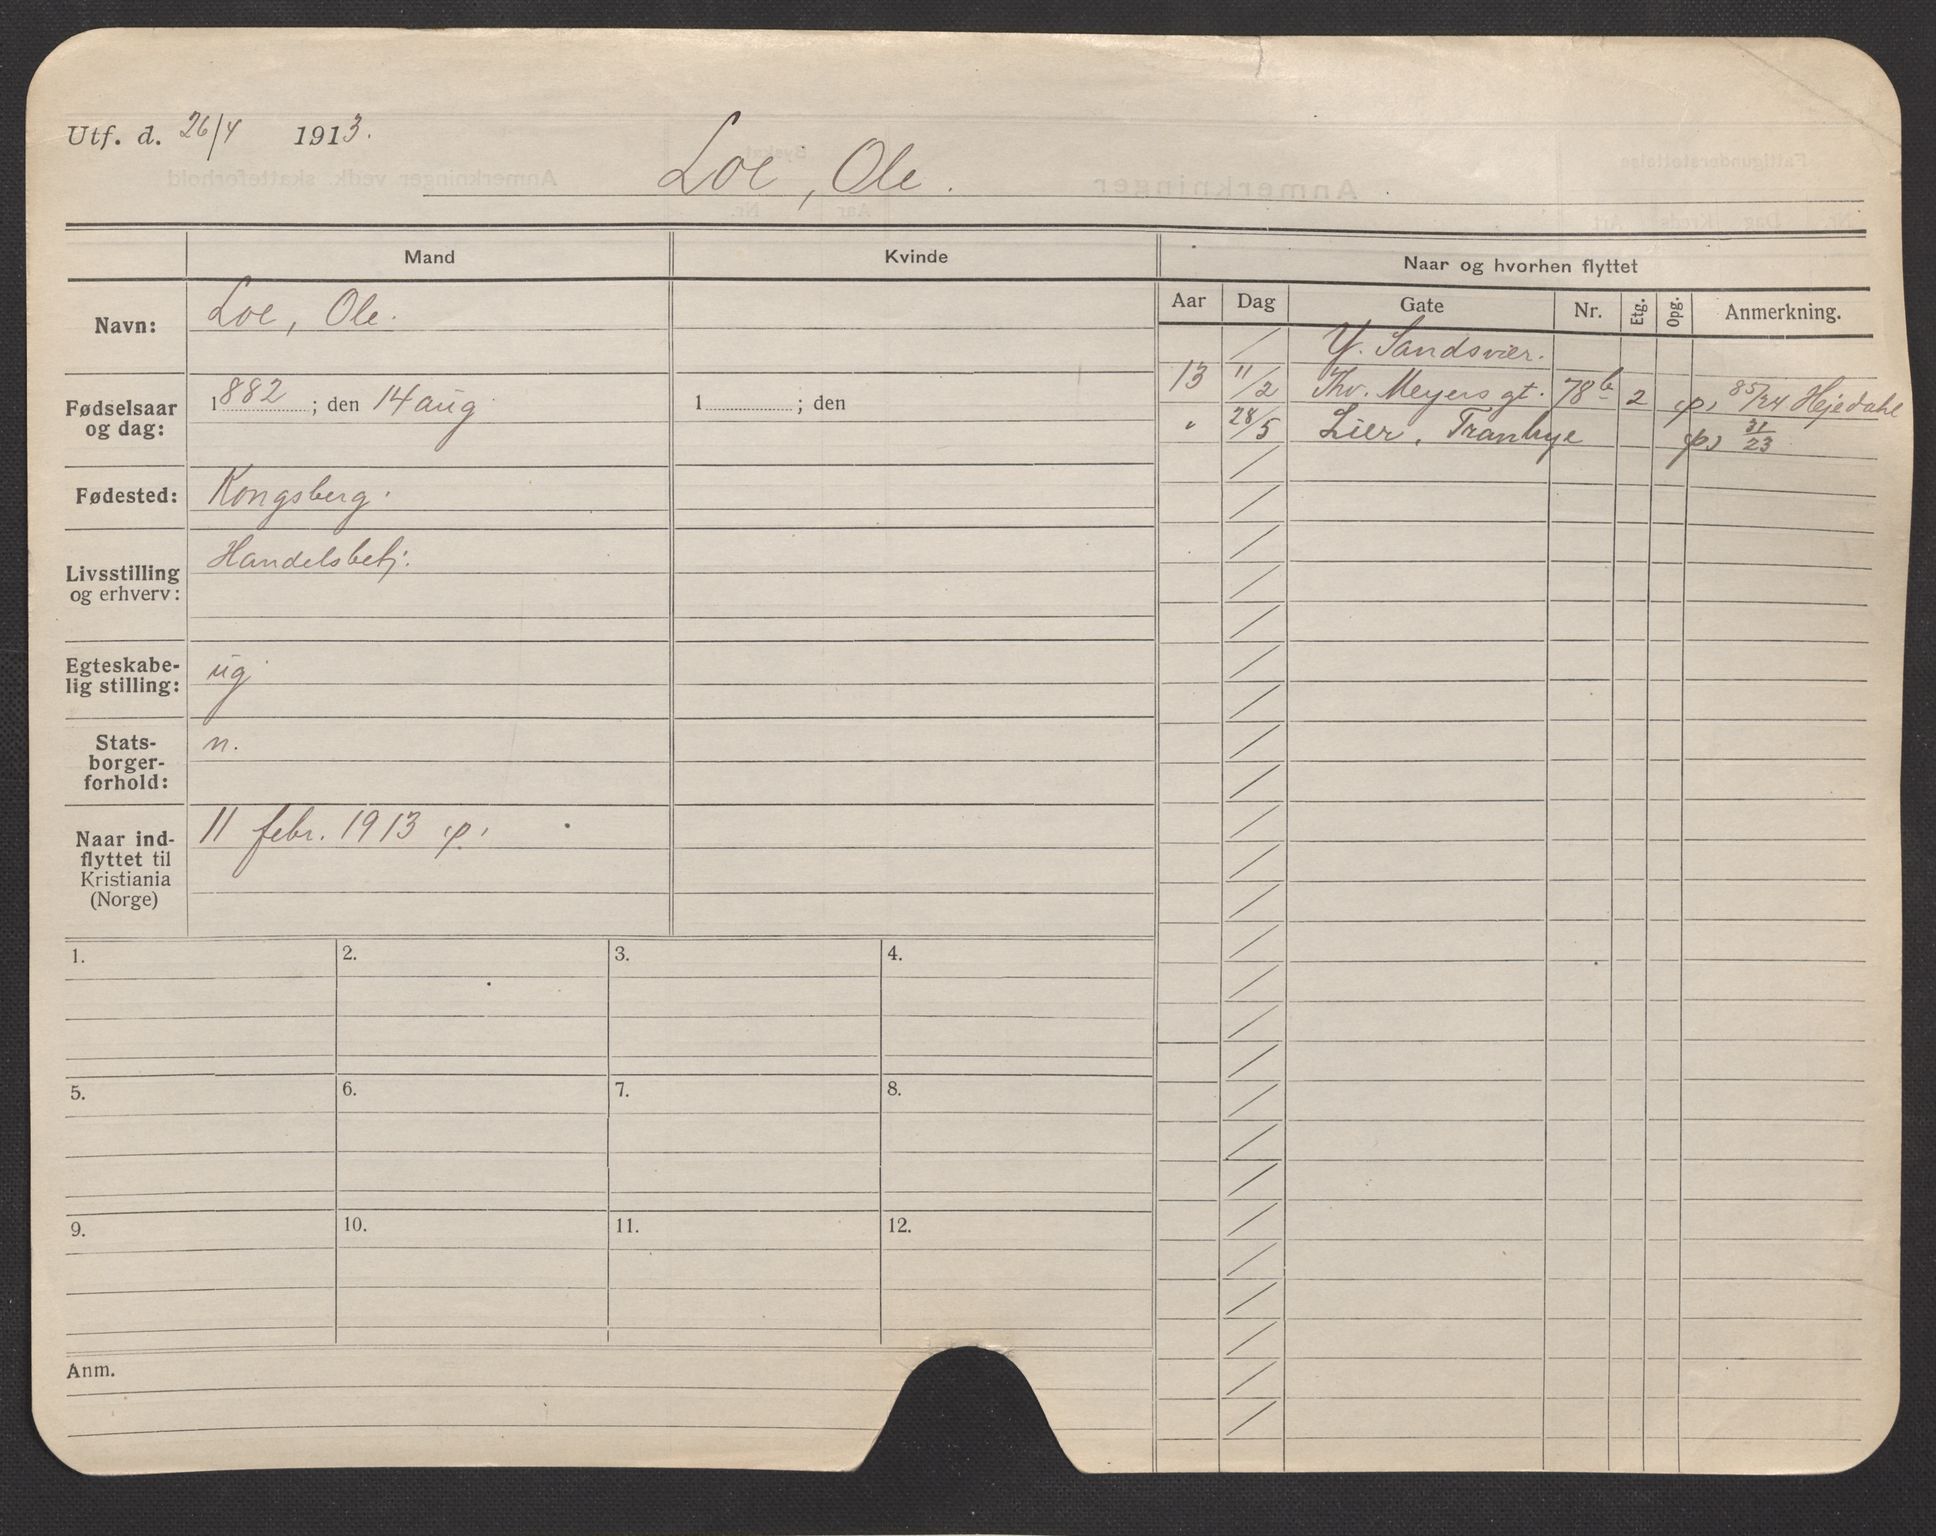 Utf. d. 26/4 1913.
Loe, Ole.
Mand
Kvinde
Naar og hvorhen flyttet
Aar Dag Gate Nr. Etg. Opg. Anmerkning.
Navn: Loe, Ole.
Fødselsaar og dag: 1882; den 14 aug
1 ; den
Fødested: Kongsberg.
Livsstilling og erhverv: Handelsbetj.
Egteskabe-
lig stilling: ug
Stats-
borger-
forhold: n.
Naar ind-
flyttet til
Kristiania
(Norge)
11 febr. 1913 p.
Y. Sandsvær.
13 11/2 Thv. Meyers gt. 78b 2 p. 85/24 Hejedahl
" 28/5 Lier, Tranbye p) 31/23
1. 2. 3. 4.
5. 6. 7. 8.
9. 10. 11. 12.
Anm.